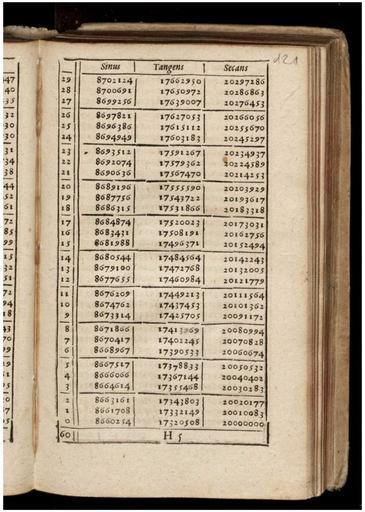 121
Sinus Tangens Secans
29 8702124 17662950 20297286
28 8700691 17650972 20286863
27 8699256 17639007 20276453
26 8697821 17627053 20266056
25 8696386 17615112 20255670
24 8694949 17603183 20245297
23 8693512 17591267 20234937
22 8692074 17579362 20224589
21 8690636 17567470 20214253
20 8689196 17555590 20203929
19 8687756 17543722 20193617
18 8686315 17531866 20183318
17 8684874 17520023 20173031
16 8683431 17508191 20162756
15 8681988 17496371 20152494
14 8680544 17484564 20142243
13 8679100 17472768 20132005
12 8677655 17460984 20121779
11 8676209 17449213 20111564
10 8674762 17437453 20101362
9 8673314 17425705 20091172
8 8671866 17413969 20080994
7 8670417 17402245 20070828
6 8668967 17390533 20060674
5 8667517 17378833 20050532
4 8666066 17367144 20040402
3 8664614 17355468 20030283
2 8663161 17343803 20020177
1 8661708 17332149 20010083
0 8660254 17320508 20000000
60 H 5